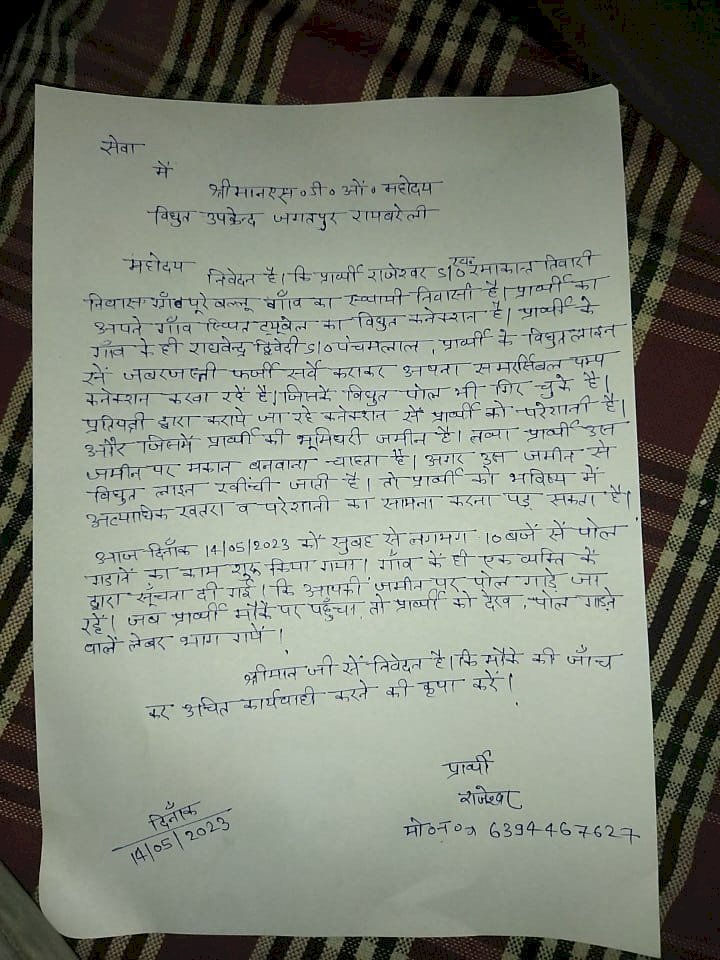 सेवा
में
श्रीमान एस०डी०ओ० महोदय
विधुत उपकेन्द जगतपुर रायबरेली
महोदय
निवेदन है। कि प्रार्थी राजेश्वर S/O स्व० रमाकान्त तिवारी
निवास गाँव पूरे वल्लू गाँव का स्थायी निवासी है। प्रार्थी का
अपने गाँव स्थित ट्यूबेल का विधुत कनेक्शन है। प्रार्थी के
गाँव के ही राघवेन्द्र द्विवेदी S/O पंचमलाल, प्रार्थी के विधुत लाइन
सें जबरजस्ती फर्जी सर्वे कराकर अपना समरसिबल पम्प
कनेक्शन करवा रहें है। जिसके विधुत पोल भी गिर चुके है।
प्रतिपक्षी द्वारा कराये जा रहे कनेक्शन सें प्रार्थी को परेशानी है।
और जिसमें प्रार्थी की भूमिधरी जमीन है। तथा प्रार्थी उस
जमीन पर मकान बनवाना चाहता है। अगर उस जमीन से
विधुत लाइन खींची जाती है। तो प्रार्थी को भविष्य में
अत्याधिक खतरा व परेशानी का सामना करना पड़ सकता है।
आज दिनाँक 14/05/2023 कों सुबह से लगभग 10 बजें सें पोल
गड़ानें का काम शुरू किया गया। गाँव कें ही एक व्यक्ति कें
द्वारा सूँचना दी गई। कि आपकी जमीन पर पोल गाड़े जा
रहें। जब प्रार्थी मौकें पर पहुँचा, तो प्रार्थी को देख, पोल गाड़ने
वालें लेबर भाग गयें।
श्रीमान जी सें निवेदन है। कि मौके की जाँच
कर उचित कार्यवाही करने की कृपा करें।
प्रार्थी
राजेश्वर
मो०न०- 6394467627
दिनाँक
14/05/2023